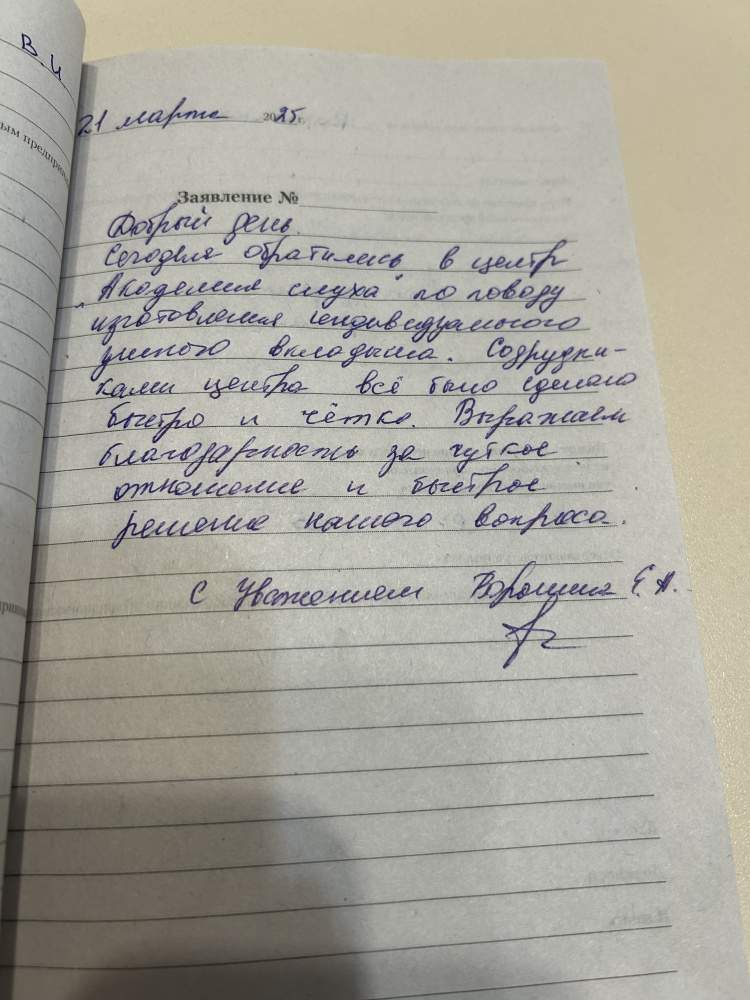 В.И
ым предприя
21 марта 2025 г.
Заявление №
Добрый день.
Сегодня обратились в центр
"Академия слуха" по поводу
изготовления индивидуального
ушного вкладыша. Сотрудни-
ками центра всё было сделано
быстро и чётко. Выражаем
благодарность за чуткое
отношение и быстрое
решение нашего вопроса.
С Уважением Е.А.